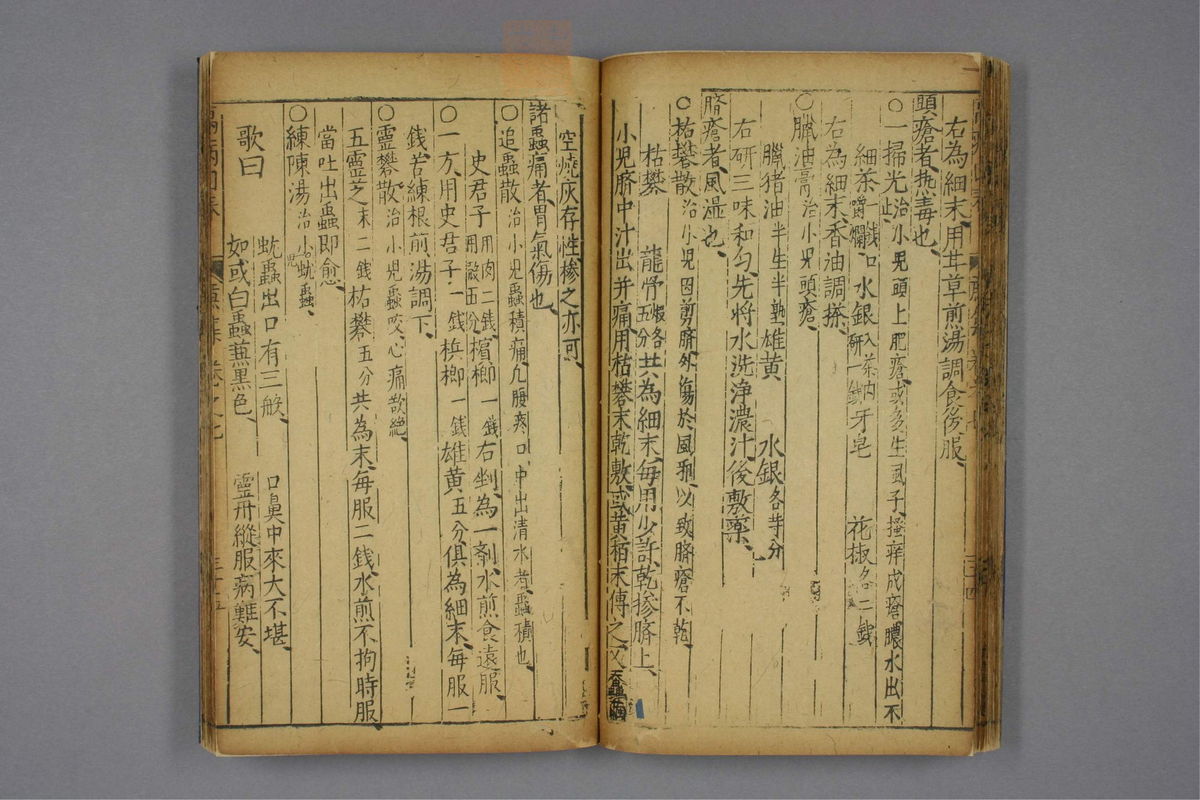 右為細末用甘草煎湯調食後服
頭瘡者熱毒也
○一掃光治小兒頭上肥瘡或多生虱子搔痒成瘡膿水出不
止
細茶一錢口嚼爛 水銀入茶內研一錢 牙皂 花椒各二錢
右為細末香油調搽
○臘油膏治小兒頭瘡
臘猪油半生半熟 雄黃 水銀各等分
右研三味和勻先將水洗淨濃汁後敷藥
臍瘡者風濕也
○枯礬散治小兒因剪臍外傷於風邪以致臍瘡不乾
枯礬 龍骨煅各五分 共為細末每用少許乾摻臍上
小兒臍中汁出并痛用枯礬末乾敷或黃栢末傅之又蚕繭
空燒灰存性摻之亦可
諸蟲痛者胃氣傷也
○追蟲散治小兒蟲積痛凢腹疼口中出清水者蟲積也
史君子用肉二錢用殼五分 檳榔一錢 右剉為一劑水煎食遠服
○一方用史君子一錢檳榔一錢雄黃五分俱為細末每服一
錢苦練根煎湯調下
○靈礬散治小兒蟲咬心痛欲絕
五靈芝末二錢枯礬五分共為末每服二錢水煎不拘時服
當吐出蟲即愈
○練陳湯治小兒蚘蟲
歌曰
蚘蟲出口有三般 口鼻中來大不堪
如或白蟲蕪黑色 靈丹縱服病難安